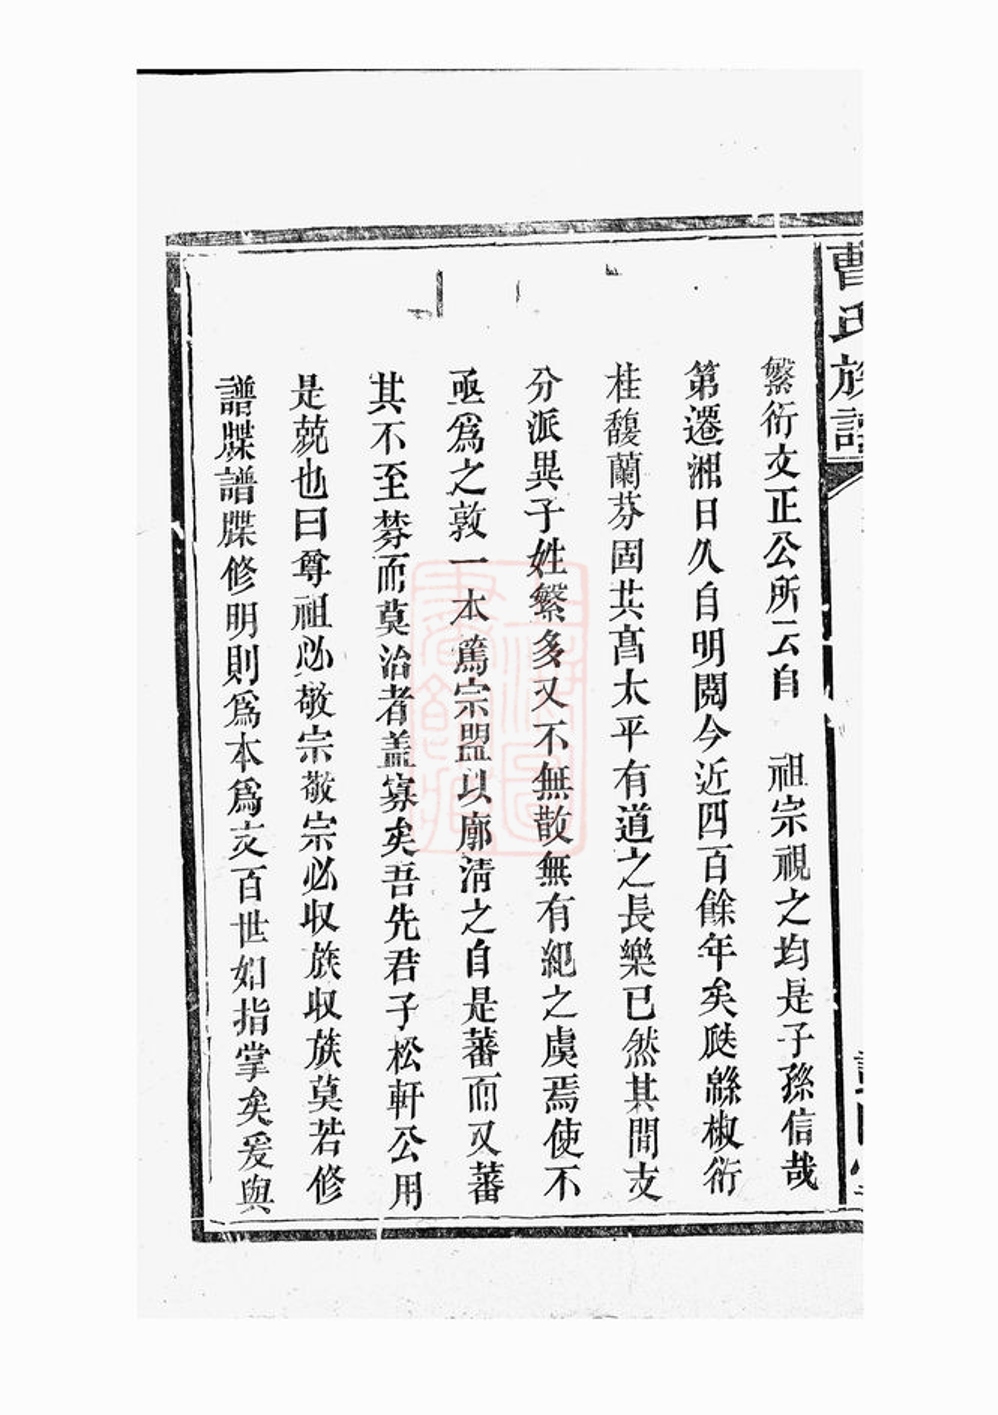 曹氏族譜
繁衍文正公所云自　祖宗視之均是子孫信哉
第遷湘日久自明閱今近四百餘年矣瓞緜椒衍
桂馥蘭芬固共髙太平有道之長樂已然其間支
分派異子姓繁多又不無散無有紀之虞焉使不
亟爲之敦一本篤宗盟以廓清之自是蕃而又蕃
其不至棼而莫治者盖寡矣吾先君子松軒公用
是兢也曰尊祖必敬宗敬宗必収族収族莫若修
譜牒譜牒修明則爲本爲支百世如指掌矣爰與